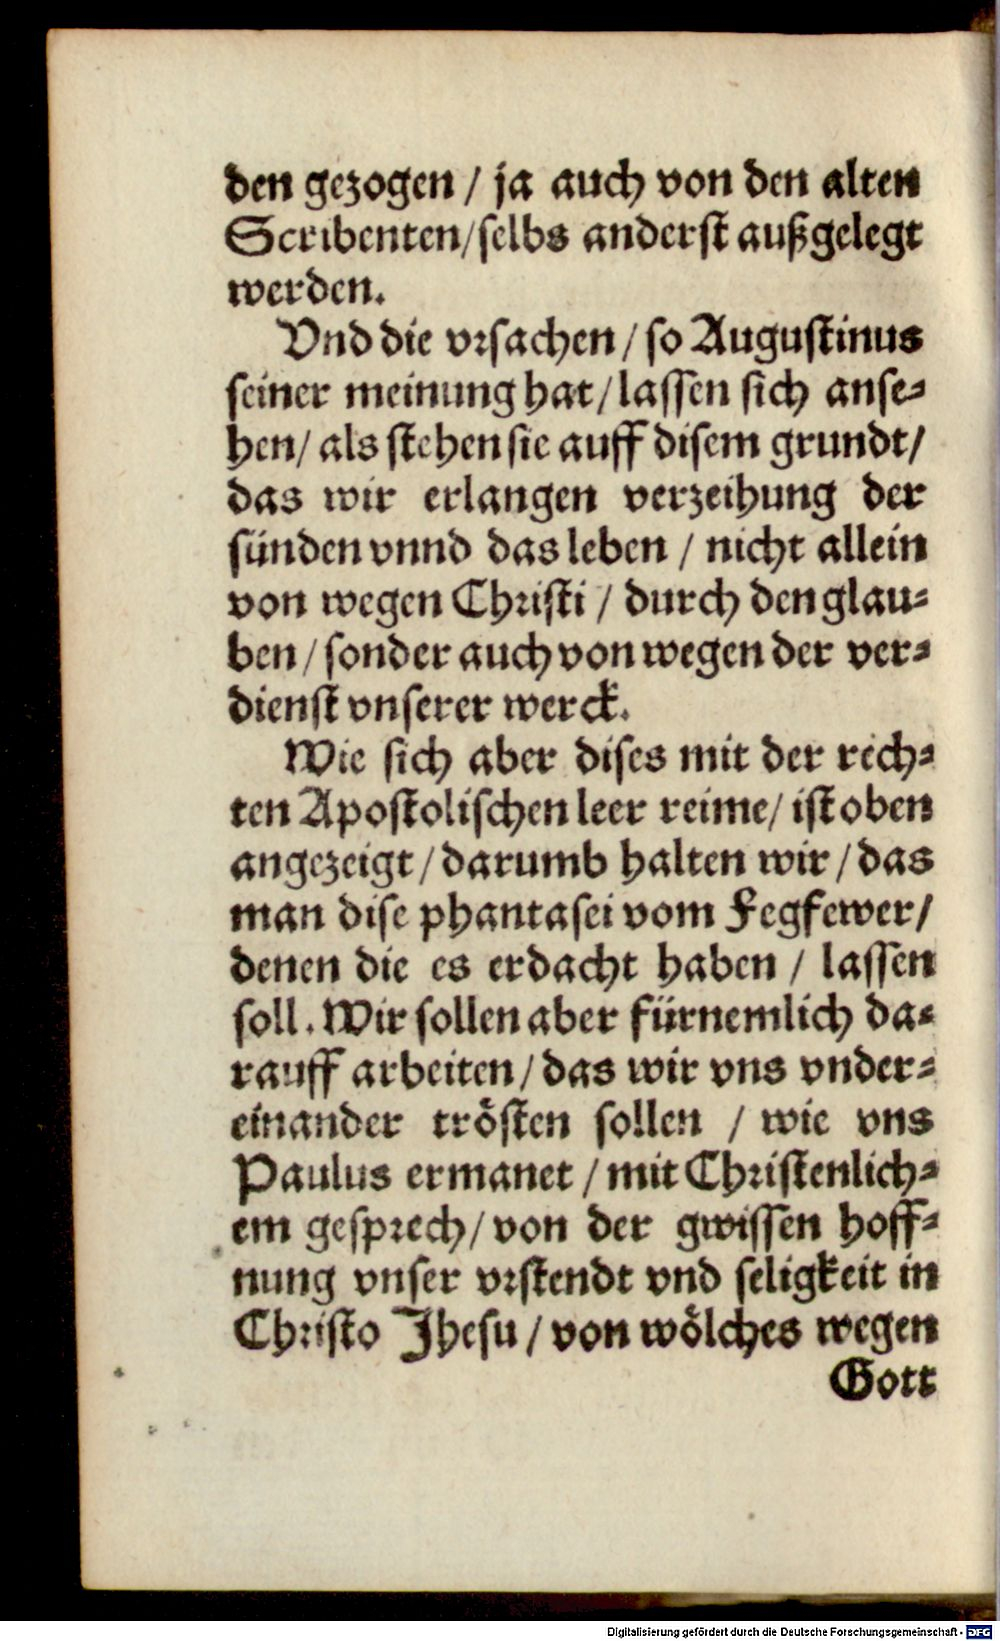 den gezogen / ja auch von den alten
Scribenten/ selbs anderst außgelegt
werden.
Vnd die vrsachen / so Augustinus
seiner meinung hat / lassen sich anse-
hen / als stehen sie auff disem grundt /
das wir erlangen verzeihung der
sünden vnnd das leben / nicht allein
von wegen Christi / durch den glau-
ben / sonder auch von wegen der ver-
dienst vnserer werck.
Wie sich aber dises mit der rech-
ten Apostolischen leer reime / ist oben
angezeigt / darumb halten wir / das
man dise phantasei vom Fegfewer /
denen die es erdacht haben / lassen
soll. Wir sollen aber fürnemlich da-
rauff arbeiten / das wir vns vnder-
einander trösten sollen / wie vns
Paulus ermanet / mit Christenlich-
em gesprech / von der gwissen hoff-
nung vnser vrstendt vnd seligkeit in
Christo Jhesu / von wölches wegen
Gott
Digitalisierung gefördert durch die Deutsche Forschungsgemeinschaft - DFG